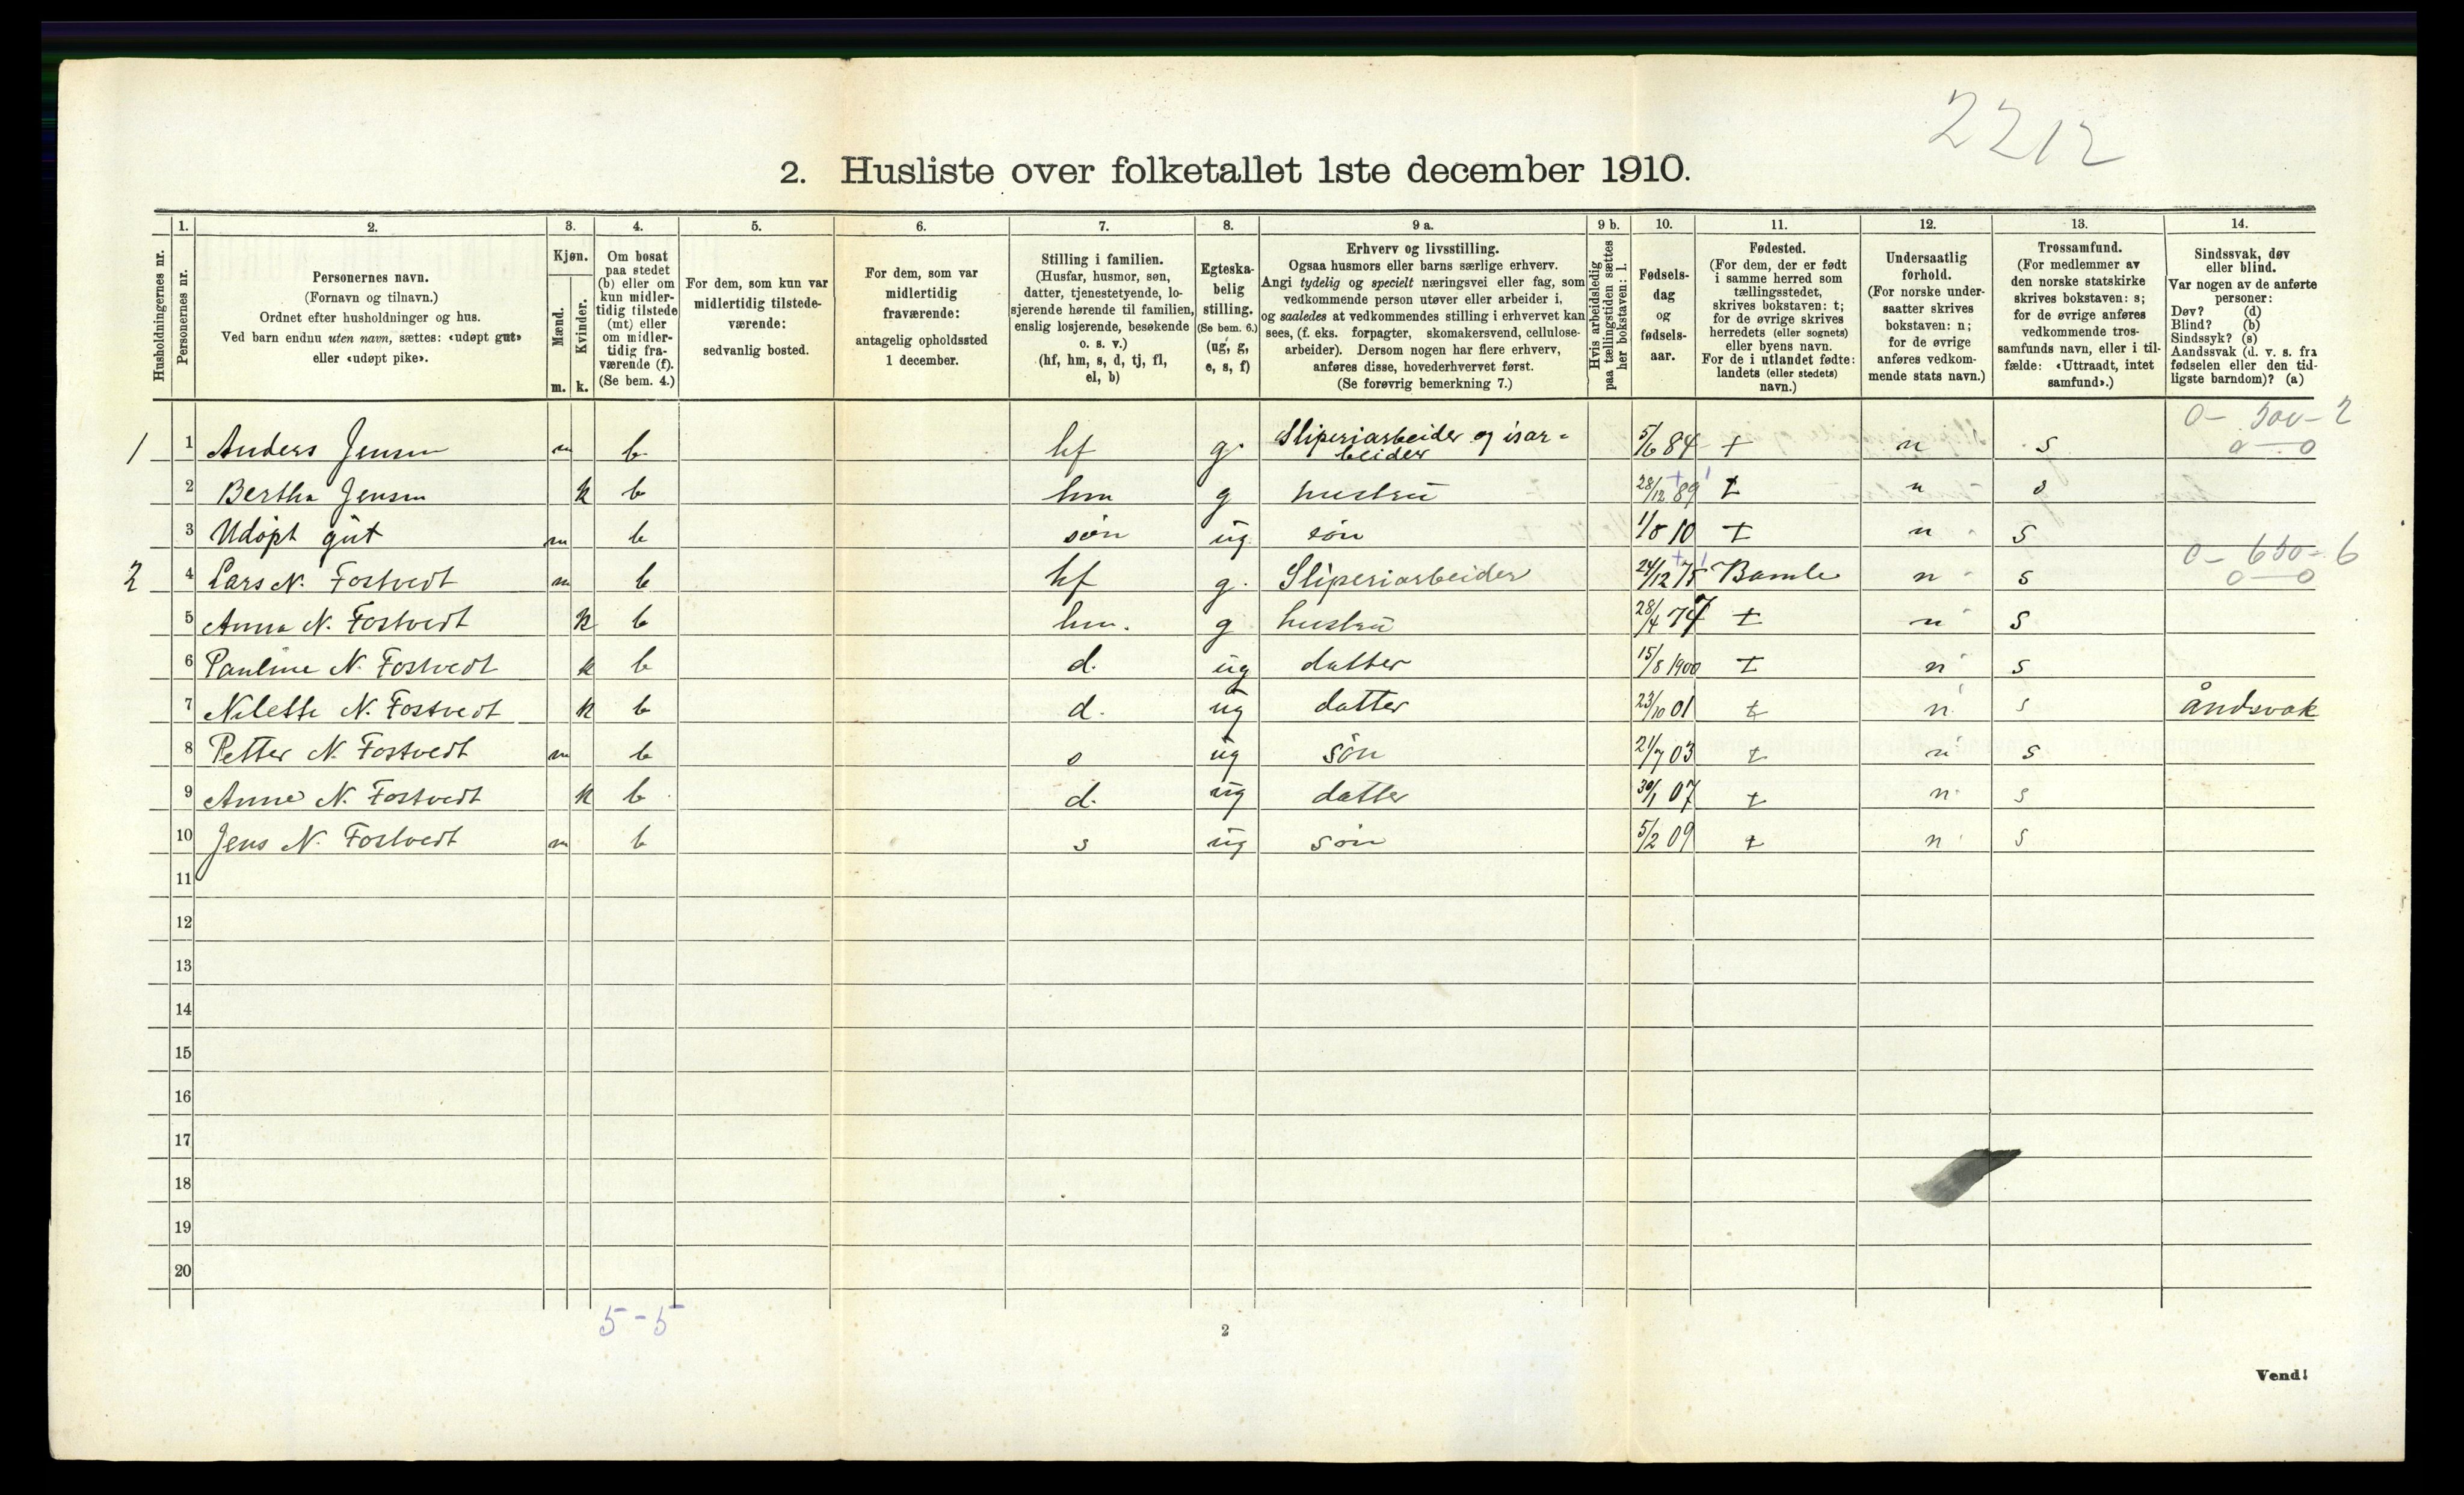 2212
2. Husliste over folketallet 1ste december 1910.
Husholdningernes nr.
1.
Personernes nr.
2.
Personernes navn.
(Fornavn og tilnavn.)
Ordnet efter husholdninger og hus.
Ved barn endnu uten navn, sættes: «udøpt gut»
eller «udøpt pike».
3.
Kjøn.
Mænd.
Kvinder.
m. k.
4.
Om bosat
paa stedet
(b) eller om
kun midler-
tidig tilstede
(mt) eller
om midler-
tidig fra-
værende (f).
(Se bem. 4.)
5.
For dem, som kun var
midlertidig tilstede-
værende:
sedvanlig bosted.
6.
For dem, som var
midlertidig
fraværende:
antagelig opholdssted
1 december.
7.
Stilling i familien.
(Husfar, husmor, søn,
datter, tjenestetyende, lo-
sjerende hørende til familien,
enslig losjerende, besøkende
o. s. v.)
(hf, hm, s, d, tj, fl,
el, b)
8.
Egteska-
belig
stilling.
(Se bem. 6.)
(ug, g,
e, s, f)
9 a.
Erhverv og livsstilling.
Ogsaa husmors eller barns særlige erhverv.
Angi tydelig og specielt næringsvei eller fag, som
vedkommende person utøver eller arbeider i,
og saaledes at vedkommendes stilling i erhvervet kan
sees, (f. eks. forpagter, skomakersvend, cellulose-
arbeider). Dersom nogen har flere erhverv,
anføres disse, hovederhvervet først.
(Se forøvrig bemerkning 7.)
9 b.
Hvis arbeidsledig
paa tællingstiden sættes
her bokstaven: l.
10.
Fødsels-
dag
og
fødsels-
aar.
11.
Fødested.
(For dem, der er født
i samme herred som
tællingsstedet,
skrives bokstaven: t;
for de øvrige skrives
herredets (eller sognets)
eller byens navn.
For de i utlandet fødte:
landets (eller stedets)
navn.)
12.
Undersaatlig
forhold.
(For norske under-
saatter skrives
bokstaven: n;
for de øvrige
anføres vedkom-
mende stats navn.)
13.
Trossamfund.
(For medlemmer av
den norske statskirke
skrives bokstaven: s;
for de øvrige anføres
vedkommende tros-
samfunds navn, eller i til-
fælde: «Uttraadt, intet
samfund».)
14.
Sindssvak, døv
eller blind.
Var nogen av de anførte
personer:
Døv? (d)
Blind? (b)
Sindssyk? (s)
Aandssvak (d. v. s. fra
fødselen eller den tid-
ligste barndom)? (a)
0 - 500 - 2
0 - 0
1 1 Anders Jensen m b hf g. Sliperiarbeider og isar-
beider 5/6 84 t n s
2 Bertha Jensen k b hm g hustrü 28/12 89 t n s
3 Udøpt güt m b søn üg søn 1/8 10 t n s
0 - 650 - 6
0 - 0
2 4 Lars N. Fostvedt m b hf g. Sliperiarbeider 24/12 75 Bamle n s
5 Anna N. Fostvedt k b hm. g hustrü 28/4 77 t n s
6 Pauline N. Fostvedt k b d. üg datter 15/8 1900 t n s
7 Nilette N. Fostvedt k b d. üg datter 23/10 01 t n s åndsvak
8 Petter N. Fostvedt m b s üg søn 21/7 03 t n s
9 Anne N. Fostvedt k b d. üg datter 30/1 07 t n s
10 Jens N. Fostvedt m b s üg søn 5/2 09 t n s
11
12
13
14
15
16
17
18
19
20
5 - 5
2
Vend!